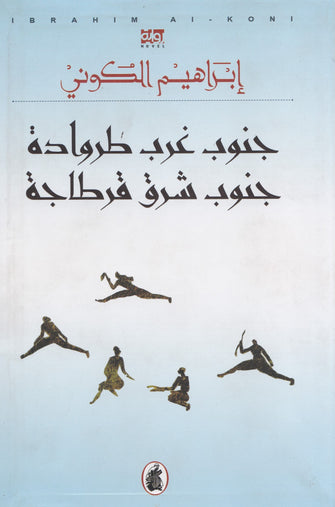 IBRAHIM Al-KONI
رواية
NOVEL
إبراهيم الكوني
جنوب غرب طروادة
جنوب شرق قرطاجة